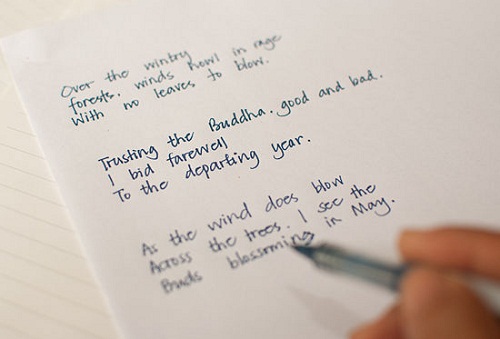 Over the wintry
forests, winds howl in rage
With no leaves to blow.
Trusting the Buddha, good and bad.
I bid farewell
To the departing year.
As the wind does blow
Across the trees, I see the
Buds blossoming in May.